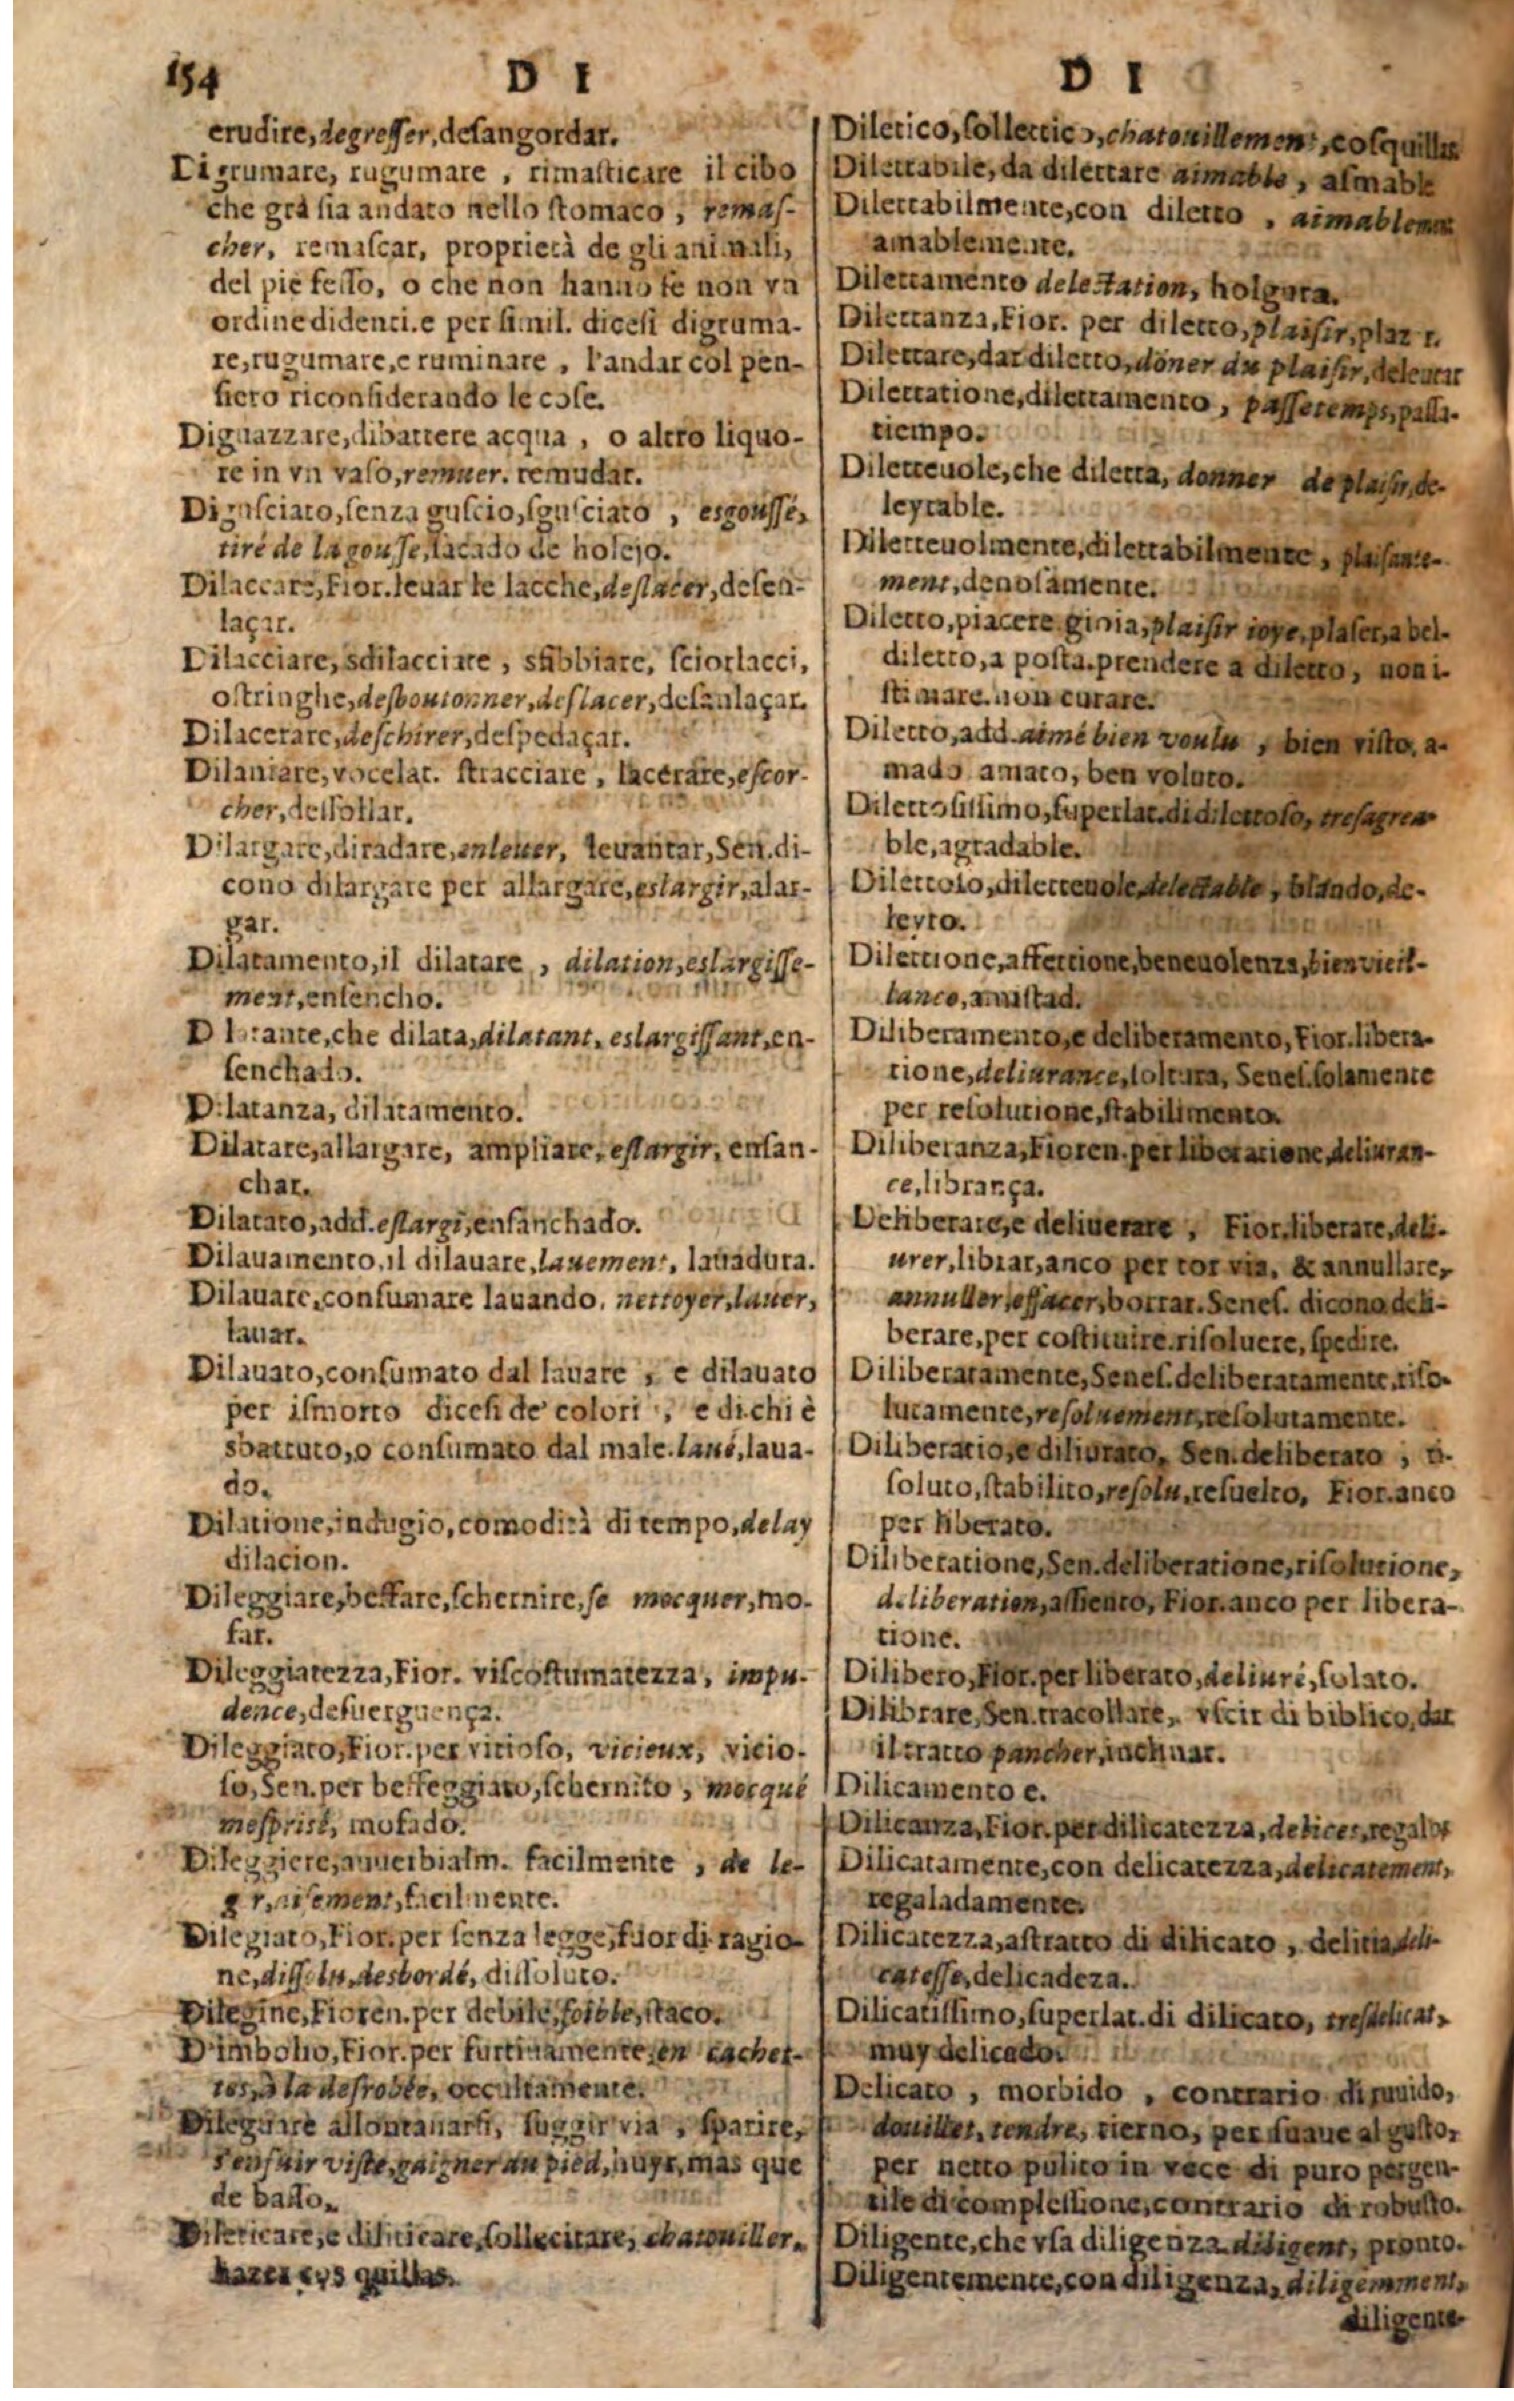 154 D I D I
erudire, degresser, desangordar.
Digrumare, rugumare, rimasticare il cibo
che già sia andato nello stomaco, remas-
cher, remascar, proprietà de gli animali,
del pie fesso, o che non hanno se non vn
ordine di denti. e per simil. dicesi digruma-
re, rugumare, e ruminare, l'andar col pen-
siero riconsiderando le cose.
Diguazzare, dibattere acqua, o altro liquo-
re in vn vaso, remuer. remudar.
Digusciato, senza guscio, sgusciato, esgoussé,
tiré de la gousse, sacado de holejo.
Dilaccare, Fior. leuar le lacche, deslacer, desen-
laçar.
Dilacciare, sdilacciare, sfibbiare, sciorlacci,
o stringhe, desboutonner, deslacer, desanlaçar.
Dilacerare, deschirer, despedaçar.
Dilaniare, voce lat. stracciare, lacerare, escor-
cher, dessollar.
Dilargare, diradare, enleuer, leuantar, Sen. di-
cono dilargare per allargare, eslargir, alar-
gar.
Dilatamento, il dilatare, dilation, eslargisse-
ment, ensencho.
Dilatante, che dilata, dilatant, eslargissant, en-
senchado.
Dilatanza, dilatamento.
Dilatare, allargare, ampliare, eslargir, ensan-
char.
Dilatato, add. eslargi, ensanchado.
Dilauamento, il dilauare, lauement, lauadura.
Dilauare, consumare lauando, nettoyer, lauer,
lauar.
Dilauato, consumato dal lauare, e dilauato
per ismorto dicesi de' colori, e di chi è
sbattuto, o consumato dal male. laué, laua-
do.
Dilatione, indugio, comodità di tempo, delay
dilacion.
Dileggiare, beffare, schernire, se mocquer, mo-
far.
Dileggiatezza, Fior. viscostumatezza, impu-
dence, desuerguença.
Dileggiato, Fior. per vitioso, vicieux, vicio-
so, Sen. per beffeggiato, schernito, mocqué
mesprisé, mofado.
Dileggiere, auuerbialm. facilmente, de le-
ger, aisement, facilmente.
Dilegiato, Fior. per senza legge, fuor di ragio-
ne, dissolu, desbordé, dissoluto.
Dilegine, Fioren. per debile, foible, flaco.
D'imbolio, Fior. per furtiuamente, en cachet-
tes, à la desrobée, occultamente.
Dileguare allontanarsi, fuggir via, sparire,
s'enfuir viste, gaigner au pied, huyr, mas que
de basso.
Dileticare, e diliticare, sollecitare, chatouiller.
hazer cosquillas.
Diletico, sollettico, chatouillement, cosquillas
Dilettabile, da dilettare aimable, asmable
Dilettabilmente, con diletto, aimablement
amablemente.
Dilettamento delectation, holgura.
Dilettanza, Fior. per diletto, plaisir, plazer.
Dilettare, dar diletto, döner du plaisir, deleutar
Dilettatione, dilettamento, passetemps, passa-
tiempo.
Diletteuole, che diletta, donner de plaisir, de-
leytable.
Diletteuolmente, dilettabilmente, plaisante-
ment, denosamente.
Diletto, piacere gioia, plaisir ioye, plaser, a bel-
diletto, a posta. prendere a diletto, non i-
stimare. non curare.
Diletto, add. aimé bien voulu, bien visto, a-
mado amato, ben voluto.
Dilettosissimo, superlat. di dilettoso, tresagrea
ble, agradable.
Dilettoso, diletteuole, delectable, blando, de-
leyto.
Dilettione, affettione, beneuolenza, bienvieil-
lance, amistad.
Diliberamento, e deliberamento, Fior. libera-
tione, deliurance, soltura, Senes. solamente
per resolutione, stabilimento.
Diliberanza, Fioren. per liberatione, deliuran-
ce, librança.
Deliberare, e deliuerare, Fior. liberare, deli-
urer, librar, anco per tor via, & annullare,
annuller, effacer, borrar. Senes. dicono deli-
berare, per costituire. risoluere, spedire.
Diliberatamente, Senes. deliberatamente, riso-
lutamente, resoluement, resolutamente.
Diliberatio, e diliurato, Sen. deliberato, ri-
soluto, stabilito, resolu, resuelto, Fior. anco
per liberato.
Diliberatione, Sen. deliberatione, risolutione,
deliberation, assiento, Fior. anco per libera-
tione.
Dilibero, Fior. per liberato, deliuré, solato.
Dilibrare, Sen. tracollare, vscir di biblico, dar
il tratto pancher, inclinar.
Dilicamento e.
Dilicanza, Fior. per dilicatezza, delices, regalos
Dilicatamente, con delicatezza, delicatement,
regaladamente.
Dilicatezza, astratto di dilicato, delitia, deli-
catesse, delicadeza.
Dilicatissimo, superlat. di dilicato, tresdelicat,
muy delicado.
Delicato, morbido, contrario di ruuido,
douillet, tendre, tierno, per suaue al gusto,
per netto pulito in vece di puro per gen-
tile di complessione, contrario di robusto.
Diligente, che vsa diligenza diligent, pronto.
Diligentemente, con diligenza, diligemment,
diligente-